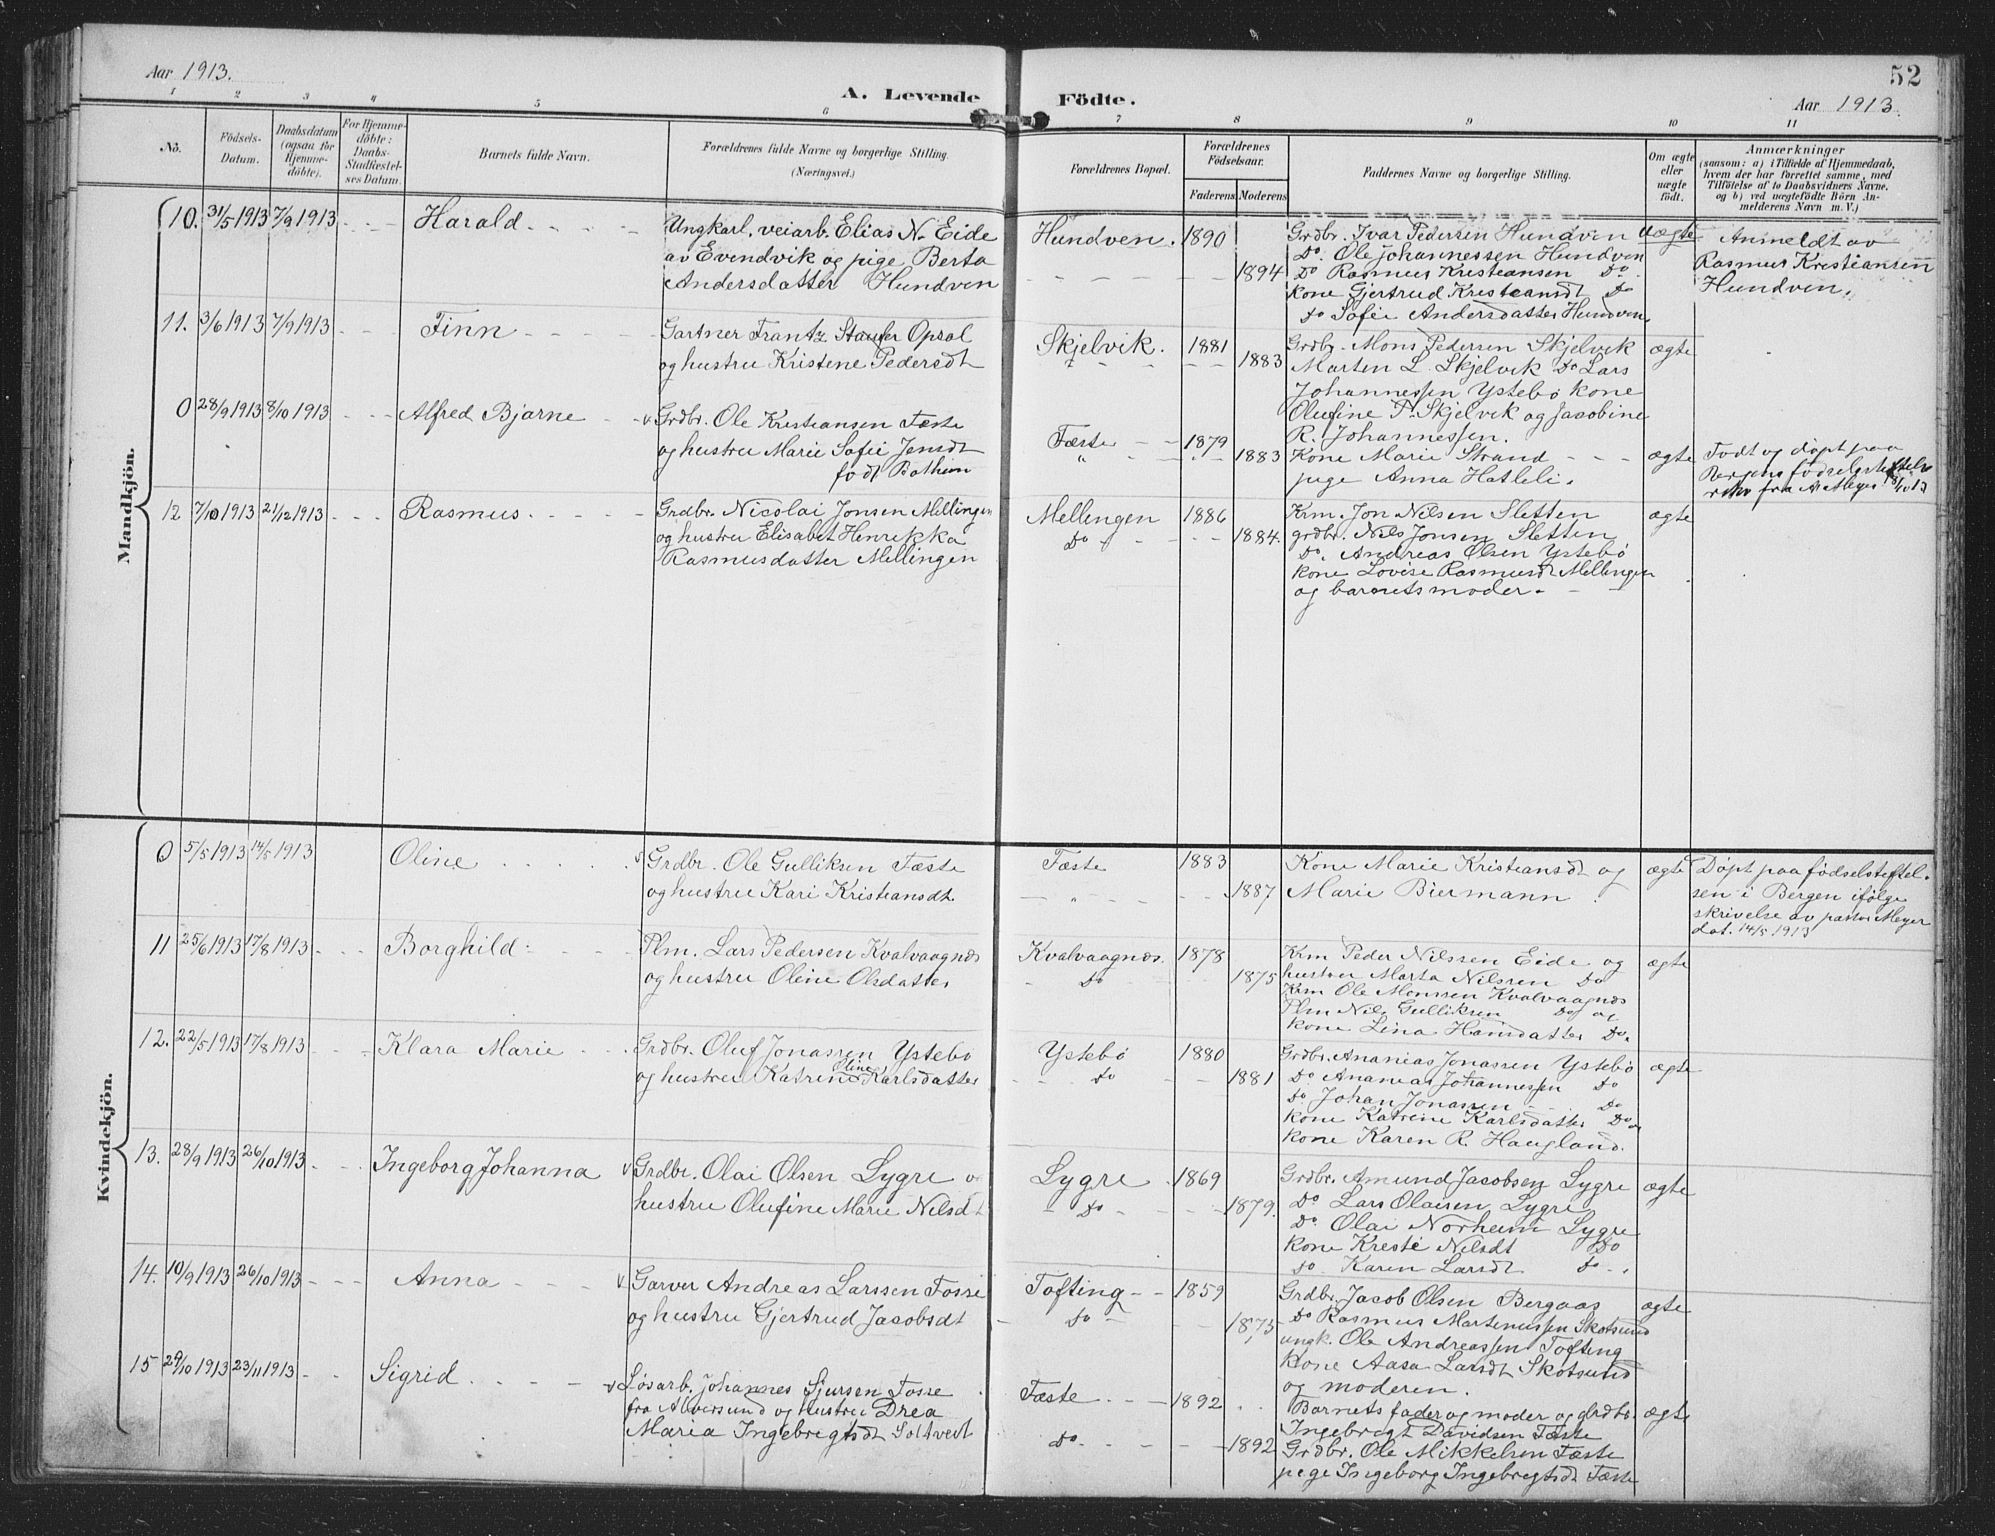 Aar 1913.
A. Levende Födte.
52
Aar 1913.
1 2 3 4 5 6 7 8 9 10 11
No.
Födsels-Datum.
Daabsdatum (ogsaa for Hjemme-döbte).
For Hjemme-döbte: Daabs-Stadfæstel-ses Datum.
Barnets fulde Navn.
Forældrenes fulde Navne og borgerlige Stilling.
(Næringsvei.)
Forældrenes Bopæl.
Forældrenes Födselsaar.
Faderens. Moderens.
Faddernes Navne og borgerlige Stilling.
Om ægte eller uægte födt.
Anmærkninger
(saasom: a) i Tilfælde af Hjemmedaab,
hvem der har forrettet samme, med
Tilföielse af to Daabsvidners Navne,
og b) ved uægtefödte Börn An-
melderens Navn m. V.)
Mandkjön.
10. 31/5 1913 7/9 1913 - - - Harald - - - -
Ungkarl, veiarb. Elias N. Eide
av Evendvik og pige Berta
Andersdatter Hundven
Hundven. 1890
1894
Grdbr. Ivar Pedersen Hundven
Do. Ole Johannessen Hundven
Do Rasmus Kristiansen Do
kone Gjertrud Kristiansdt Do
Do Sofie Andersdatter Hundven
uægte
Anmeldt av
Rasmus Kristiansen
Hundven.
11. 3/6 1913 7/9 1913 - - - Finn - - - -
Gartner Frantz Opsal
og hustru Kristene Pedersdt
Skjelvik. 1881
1883
Grdbr. Mons Pedersen Skjelvik
Marten L. Skjelvik Do Lars
Johannessen Ystebø kone
Olufine P. Skjelvik og Jacobine
R. Johannessen.
ægte
0 28/9 1913 8/10 1913 - - - Alfred Bjarne - -
Grdbr. Ole Kristiansen Fæste
og hustru Marie Sofie Jensdt
født
Fæste - - 1879
" 1883
Kone Marie Strand - - -
pige Anna Hatleli.
ægte
Født og døpt paa
Bergens
fra A. Meyer
12 7/10 1913 21/12 1913 - - - Rasmus - - - -
Grdbr. Nicolai Jonsen Mellingen
og hustru Elisabet Henrikka
Rasmusdatter Mellingen
Mellingen 1886
Do 1884.
Krm. Jon Nilsen Sletten
grdbr. Nils Jonsen Sletten
Do. Andreas Olsen Ystebø
kone Lovise Rasmusdt Mellingen
og barnets moder. -
ægte
Kvindekjön.
0 5/5 1913 14/5 1913 Oline . . . . .
Grdbr. Ole Gulliksen Fæste
og hustru Kari Kristiansdt.
Fæste 1883
" 1887
Kone Marie Kristiansdt og
Marie Biermann
ægte
Døpt paa fødselsstiftel-
sen i Bergen ifølge
skrivelse av pastor Meyer
dat. 14/5 1913
11 25/6 1913 17/8 1913 - - - Borghild - - -
Plm. Lars Pedersen Kvalvaagnæs
og hustru Oline Olsdatter
Kvalvaagnæs. 1878
Do 1875
Krm Peder Nilssen Eide og
hustru Marta Nilssen Do
Krm Ole Monssen Kvalvaagnæs
Plm Nils Gulliksen Do og
kone Lina Hansdatter Do.
ægte
12. 22/5 1913 17/8 1913 - - Klara Marie - -
Grdbr. Oluf Jonassen Ystebø
Oline
og hustru Katrine Karlsdatter
Ystebø 1880
Do 1881
Grdbr. Ananias Jonassen Ystebø
Do Ananias Johannessen Do
Do Johan Jonassen Do
kone Katrine Karlsdatter Do
kone Karen R. Haugland.
ægte
13. 28/9 1913 26/10 1913 - - - Ingeborg Johanna
Grdbr. Olai Olsen Lygre
hustru Olufine Marie Nilsdt
Lygre 1869
Do 1879.
Grdbr. Amund Jacobsen Lygre
Do Lars Olaisen Lygre
Do Olai Norheim Lygre
kone Kresti Nilsdt Do
Do Karen Larsdt Do
ægte
14. 10/9 1913 26/10 1913 - - - Anna - - -
Garver Andreas Larssen Fosse
og hustru Gjertrud Jacobsdt
Tofting - - 1859
Do 1873
Grdbr. Jacob Olsen Bergaas
Do Rasmus Martinussen Skotsund
ungk. Ole Andreassen Tofting
Kone Aasa Larsdt Skotsund
og moderen.
ægte
15 29/10 1913 23/11 1913 - - Sigrid - - - -
Løsarb. Johannes Sjursen Fosse
fra Alversund og hustru Drea
Maria Ingebregtsdt Soltveit
Fæste - - 1892
Do. 1892
Barnets fader og moder og grdbr.
Ingebregt Davidsen Fæste
Grdbr. Ole Mikkelsen Fæste
pige Ingeborg Ingebregtsdt Fæste
ægte